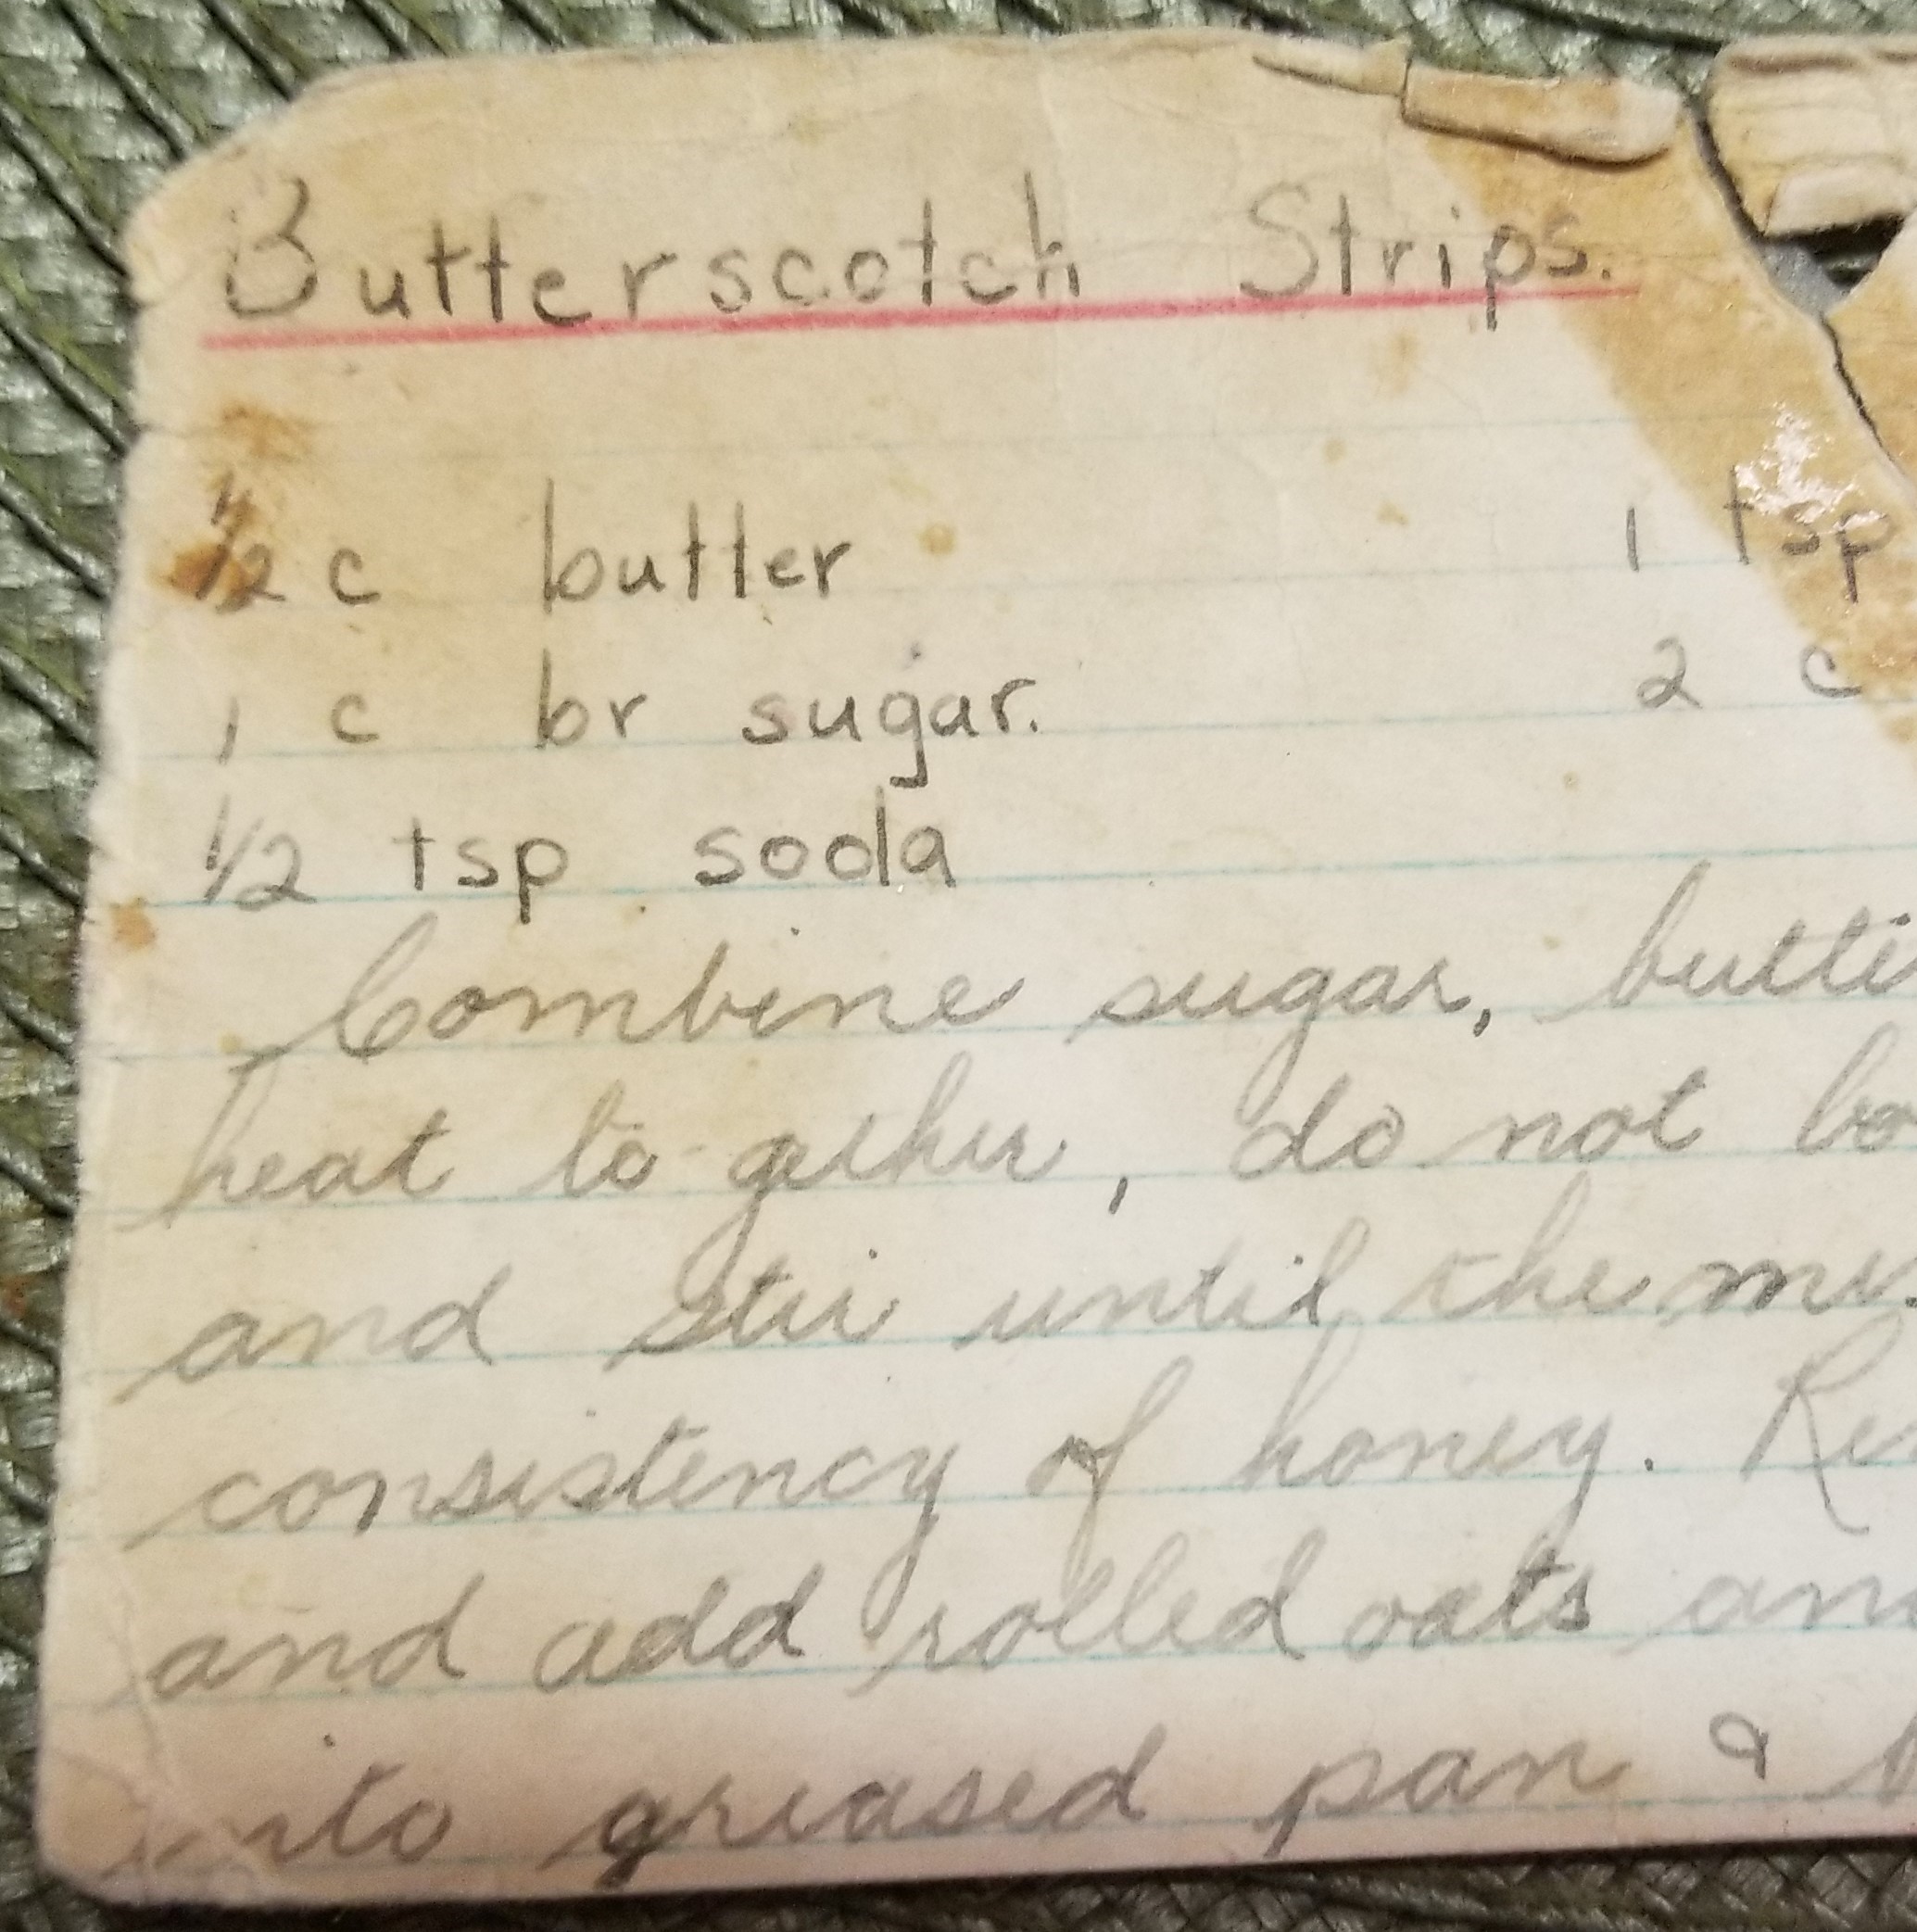 Butterscotch Strips.
½ c butter 1 tsp
1 c br sugar. 2 c
½ tsp soda
Combine sugar, butte
heat to gether, do not bo
and stir until the mi
consistency of honey. Re
and add rolled oats an
into greased pan &